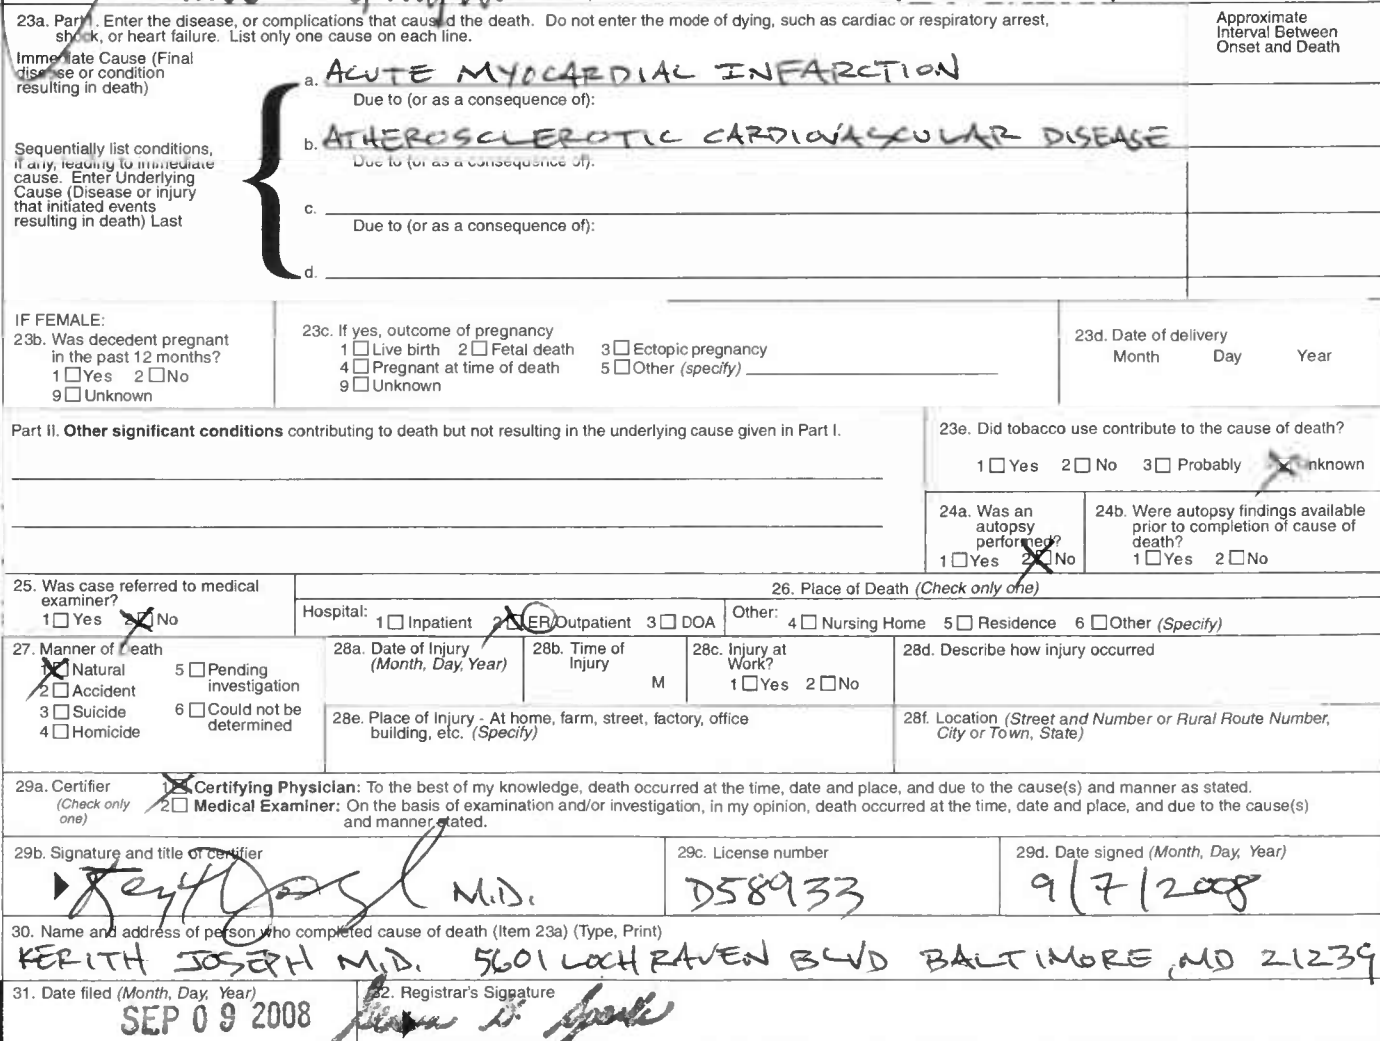 23a. Part I. Enter the disease, or complications that caused the death. Do not enter the mode of dying, such as cardiac or respiratory arrest,
shock, or heart failure. List only one cause on each line.
Approximate
Interval Between
Onset and Death
Immediate Cause (Final
disease or condition
resulting in death)
a. ACUTE MYOCARDIAL INFARCTION
Due to (or as a consequence of):
Sequentially list conditions,
if any, leading to immediate
cause. Enter Underlying
Cause (Disease or injury
that initiated events
resulting in death) Last
b. ATHEROSCLEROTIC CARDIOVASCULAR DISEASE
Due to (or as a consequence of):
c.
Due to (or as a consequence of):
d.
IF FEMALE:
23b. Was decedent pregnant
in the past 12 months?
1 ☐ Yes 2 ☐ No
9 ☐ Unknown
23c. If yes, outcome of pregnancy
1 ☐ Live birth 2 ☐ Fetal death 3 ☐ Ectopic pregnancy
4 ☐ Pregnant at time of death 5 ☐ Other (specify)
9 ☐ Unknown
23d. Date of delivery
Month Day Year
Part II. Other significant conditions contributing to death but not resulting in the underlying cause given in Part I.
23e. Did tobacco use contribute to the cause of death?
1 ☐ Yes 2 ☐ No 3 ☐ Probably ☒ Unknown
24a. Was an
autopsy
performed?
1 ☐ Yes 2 ☒ No
24b. Were autopsy findings available
prior to completion of cause of
death?
1 ☐ Yes 2 ☐ No
25. Was case referred to medical
examiner?
1 ☐ Yes 2 ☒ No
26. Place of Death (Check only one)
Hospital: 1 ☐ Inpatient 2 ☒ ER/Outpatient 3 ☐ DOA Other: 4 ☐ Nursing Home 5 ☐ Residence 6 ☐ Other (Specify)
27. Manner of Death
1 ☒ Natural 5 ☐ Pending
investigation
2 ☐ Accident
3 ☐ Suicide 6 ☐ Could not be
determined
4 ☐ Homicide
28a. Date of Injury
(Month, Day, Year)
28b. Time of
Injury
M
28c. Injury at
Work?
1 ☐ Yes 2 ☐ No
28d. Describe how injury occurred
28e. Place of Injury - At home, farm, street, factory, office
building, etc. (Specify)
28f. Location (Street and Number or Rural Route Number,
City or Town, State)
29a. Certifier
(Check only
one)
1 ☒ Certifying Physician: To the best of my knowledge, death occurred at the time, date and place, and due to the cause(s) and manner as stated.
2 ☐ Medical Examiner: On the basis of examination and/or investigation, in my opinion, death occurred at the time, date and place, and due to the cause(s)
and manner stated.
29b. Signature and title of certifier
M.D.
29c. License number
D58933
29d. Date signed (Month, Day, Year)
9/7/2008
30. Name and address of person who completed cause of death (Item 23a) (Type, Print)
KERITH JOSEPH M.D. 5601 LOCH RAVEN BLVD BALTIMORE, MD 21239
31. Date filed (Month, Day, Year)
SEP 09 2008
32. Registrar's Signature